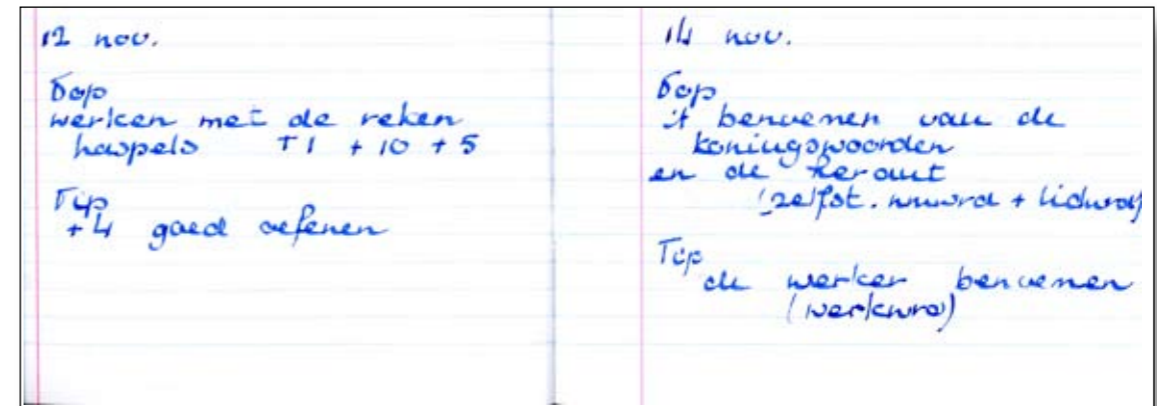 12 nov.
Top
werken met de reken
haspels +1 +10 +5
Tip
+4 goed oefenen
14 nov.
Top
't benoemen van de
koningswoorden
en de heraut
(zelfst. nmwrd + lidwrd)
Tip
de werker benoemen
(werkwrd)